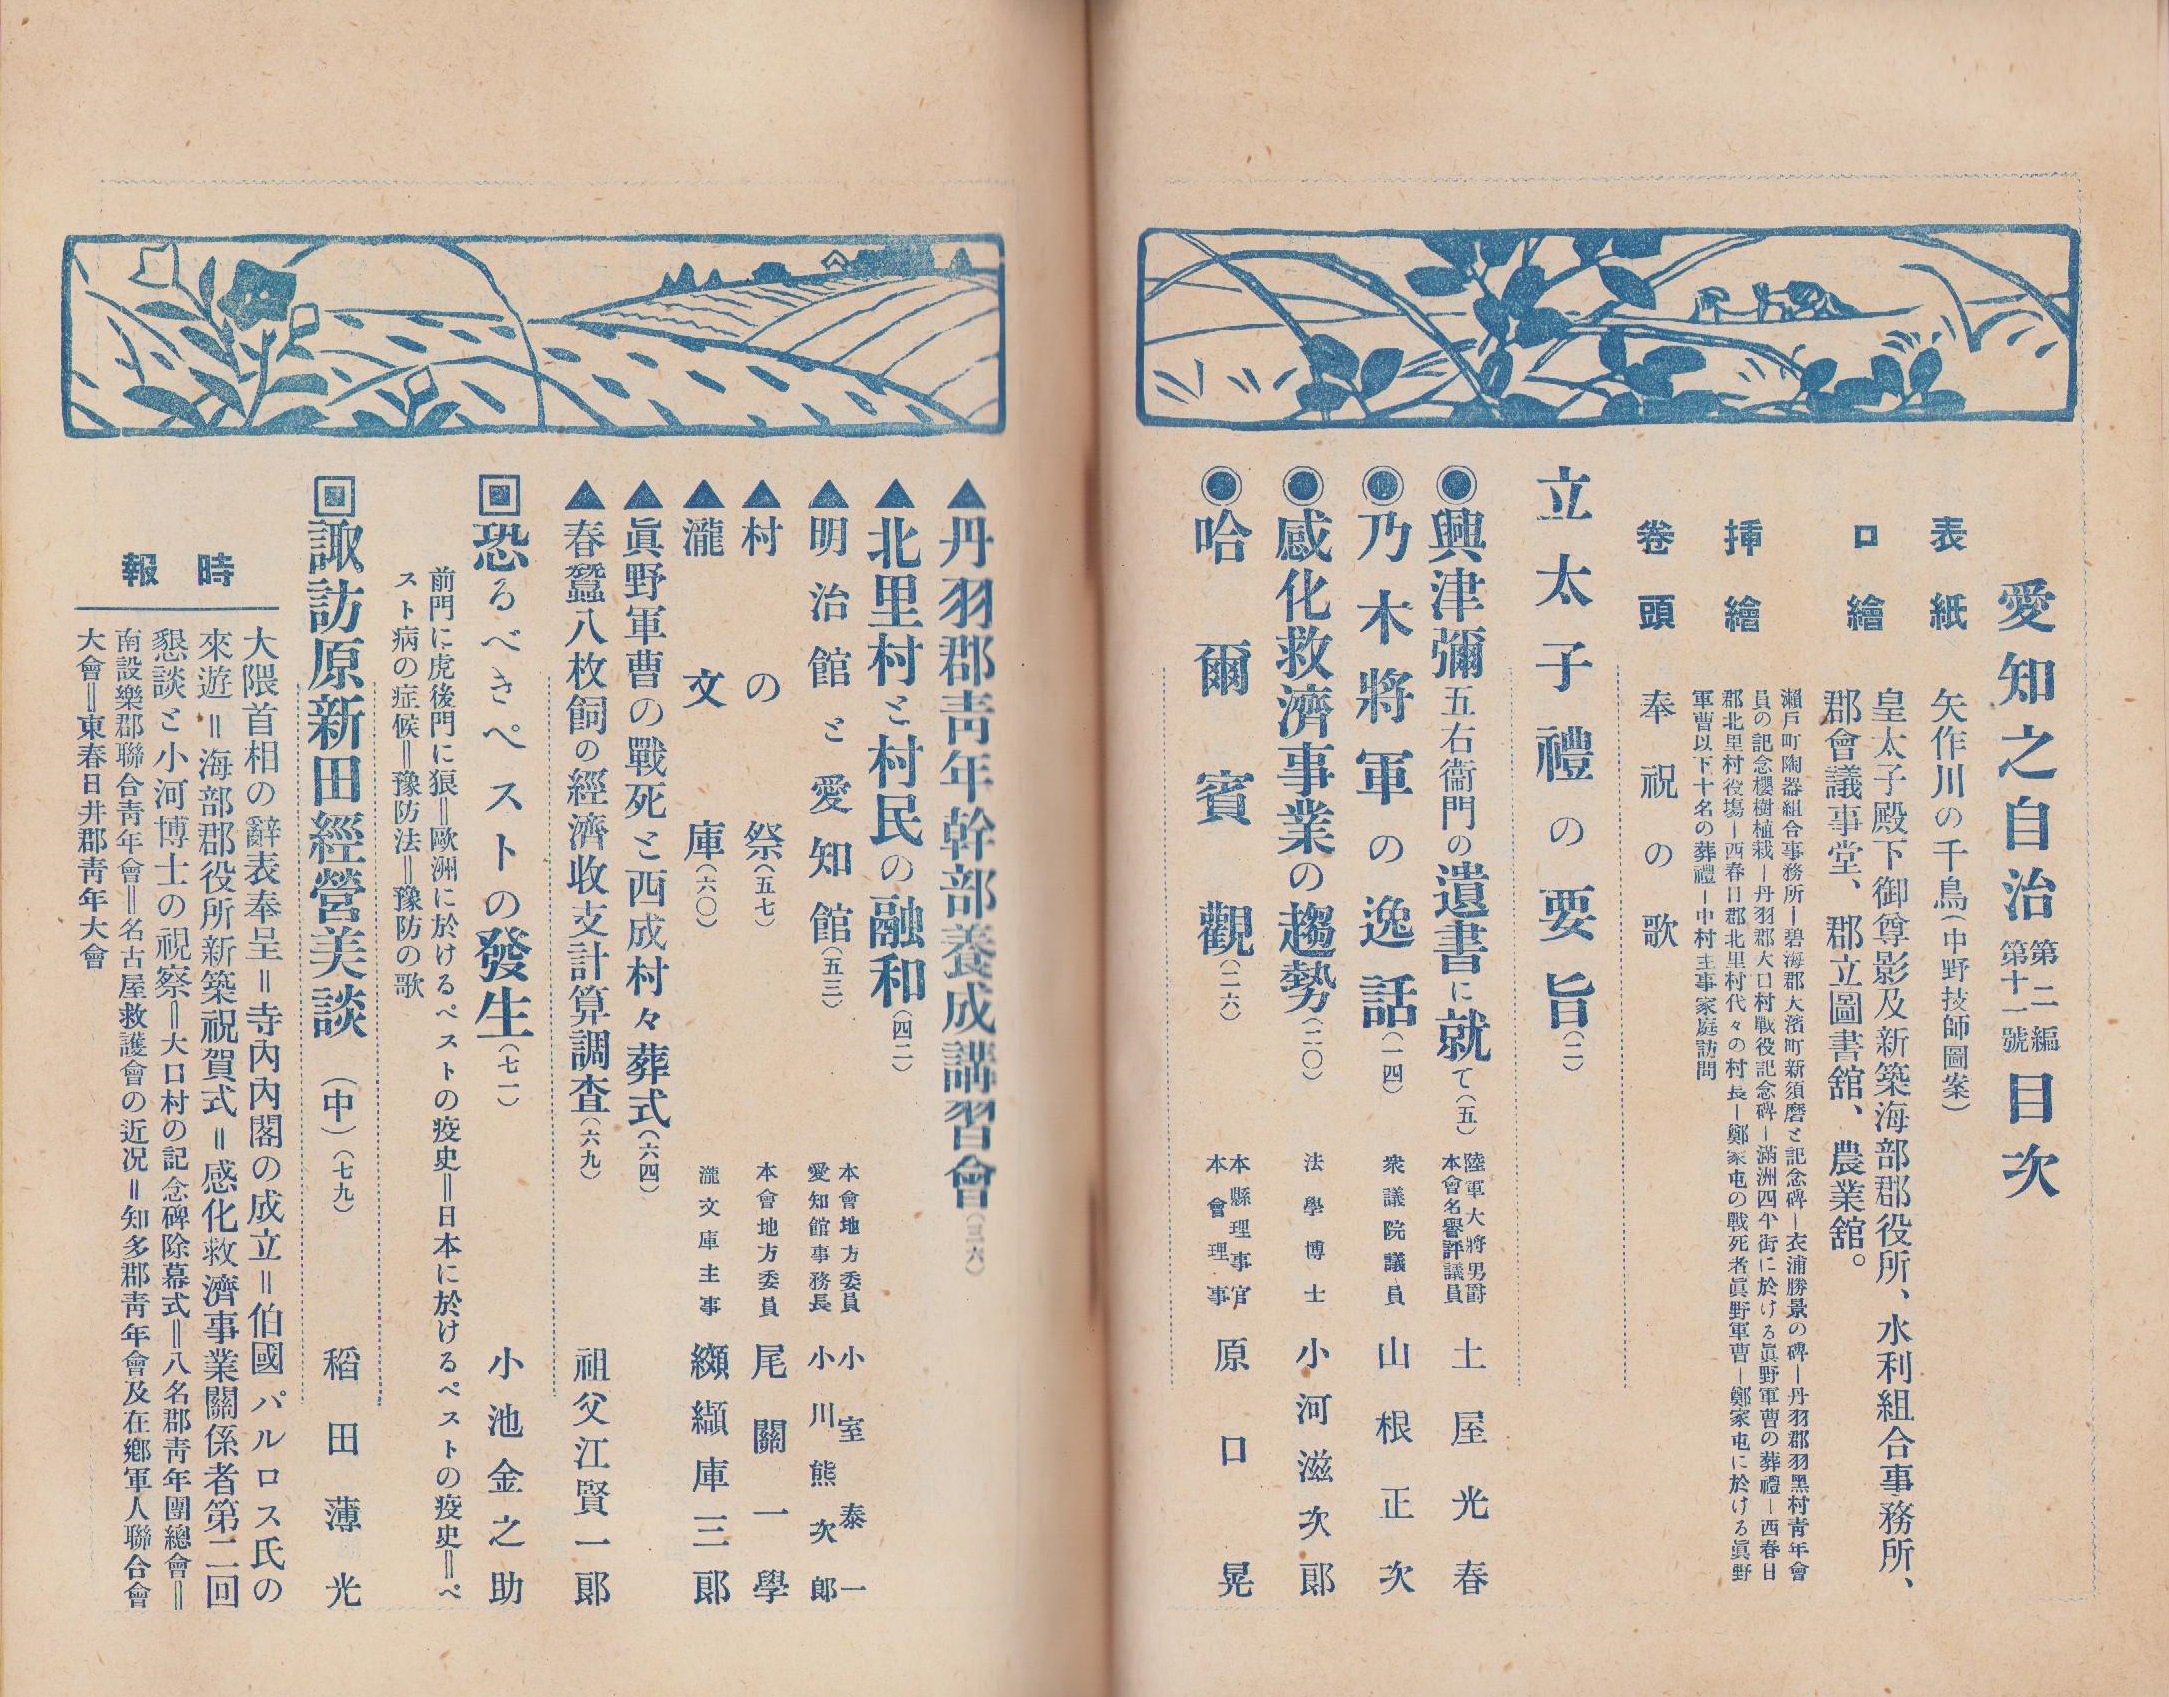 愛知之自治 第二編第十一號 目次
表紙 矢作川の千鳥(中野技師圖案)
口繪 皇太子殿下御尊影及新築海部郡役所、水利組合事務所、
郡會議事堂、郡立圖書舘、農業舘。
挿繪 瀨戸町陶器組合事務所―碧海郡大濱町新須磨と記念碑―衣浦勝景の碑―丹羽郡羽黑村靑年會
員の記念櫻樹植栽―丹羽郡大口村戰役記念碑―滿洲四平街に於ける眞野軍曹の葬禮―西春日
郡北里村役塲―西春日郡北里村代々の村長―鄭家屯の戰死者眞野軍曹―鄭家屯に於ける眞野
軍曹以下十名の葬禮―中村主事家庭訪問
卷頭 奉祝の歌
立太子禮の要旨(二)
◉興津彌五右衞門の遺書に就て(五) 陸軍大將男爵 本會名譽評議員 土屋光春
◉乃木將軍の逸話(一四) 衆議院議員 山根正次
◉感化救濟事業の趨勢(二〇) 法學博士 小河滋次郞
◉哈爾賓觀(二六) 本縣理事官 本會理事 原口晃
▲丹羽郡靑年幹部養成講習會(三六)
▲北里村と村民の融和(四二)
▲明治館と愛知館(五三) 本會地方委員 小室泰一
愛知館事務長 小川熊次郞
▲村の祭(五七) 本會地方委員 尾關一學
▲瀧文庫(六〇) 瀧文庫主事 纐纈庫三郞
▲眞野軍曹の戰死と西成村々葬式(六四)
▲春蠶八枚飼の經濟收支計算調査(六九) 祖父江賢一郞
回恐るべきペストの發生(七一) 小池金之助
前門に虎後門に狼＝歐洲に於けるペストの疫史＝日本に於けるペストの疫史＝ペ
スト病の症候＝豫防法＝豫防の歌
回諏訪原新田經營美談(中)(七九) 稻田薄光
時報
大隈首相の辭表奉呈＝寺內內閣の成立＝伯國パルロス氏の
來遊＝海部郡役所新築祝賀式＝感化救濟事業關係者第二回
懇談と小河博士の視察＝大口村の記念碑除幕式＝八名郡靑年團總會＝
南設樂郡聯合靑年會＝名古屋救護會の近况＝知多郡靑年會及在鄕軍人聯合會
大會＝東春日井郡靑年大會